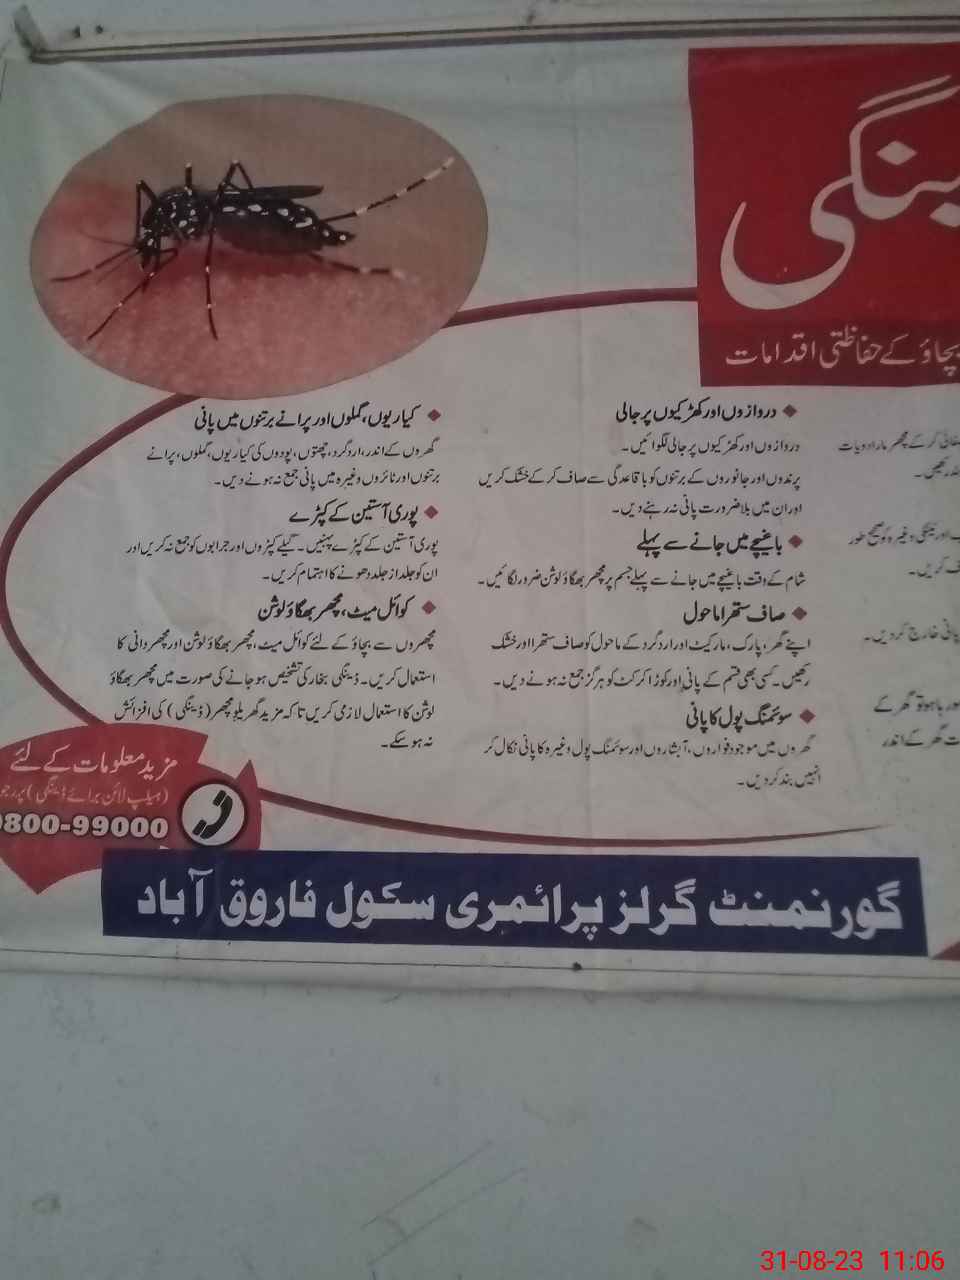 بچاؤ کے حفاظتی اقدامات
دروازوں اور کھڑکیوں پر جالی
دروازوں اور کھڑکیوں پر جالی لگوائیں۔
پرندوں اور جانوروں کے برتنوں کو باقاعدگی سے صاف کر کے خشک کریں
اور ان میں بلا ضرورت پانی نہ رہنے دیں۔
باغیچے میں جانے سے پہلے
شام کے وقت باغیچے میں جانے سے پہلے جسم پر مچھر بھگاؤ لوشن ضرور لگائیں۔
صاف ستھرا ماحول
اپنے گھر، پارک، مارکیٹ اور ارد گرد کے ماحول کو صاف ستھرا اور خشک
رکھیں۔ کسی بھی قسم کے پانی اور کوڑا کرکٹ کو ہرگز جمع نہ ہونے دیں۔
سوئمنگ پول کا پانی
گھروں میں موجود فواروں، آبشاروں اور سوئمنگ پول وغیرہ کا پانی نکال کر
انہیں بند کر دیں۔
کیاریوں، گملوں اور پرانے برتنوں میں پانی
گھروں کے اندر، ارد گرد، چھتوں، پودوں کی کیاریوں، گملوں، پرانے
برتنوں اور ٹائروں وغیرہ میں پانی جمع نہ ہونے دیں۔
پوری آستین کے کپڑے
پوری آستین کے کپڑے پہنیں۔ گیلے کپڑوں اور جرابوں کو جمع نہ کریں اور
ان کو جلد از جلد دھونے کا اہتمام کریں۔
کوائل میٹ، مچھر بھگاؤ لوشن
مچھروں سے بچاؤ کے لئے کوائل میٹ، مچھر بھگاؤ لوشن اور مچھر دانی کا
استعمال کریں۔ ڈینگی بخار کی تشخیص ہو جانے کی صورت میں مچھر بھگاؤ
لوشن کا استعمال لازمی کریں تاکہ مزید گھریلو مچھر (ڈینگی) کی افزائش
نہ ہو سکے۔
مزید معلومات کے لئے
(ہیلپ لائن برائے ڈینگی) پر رجو
0800-99000
گورنمنٹ گرلز پرائمری سکول فاروق آباد
31-08-23 11:06